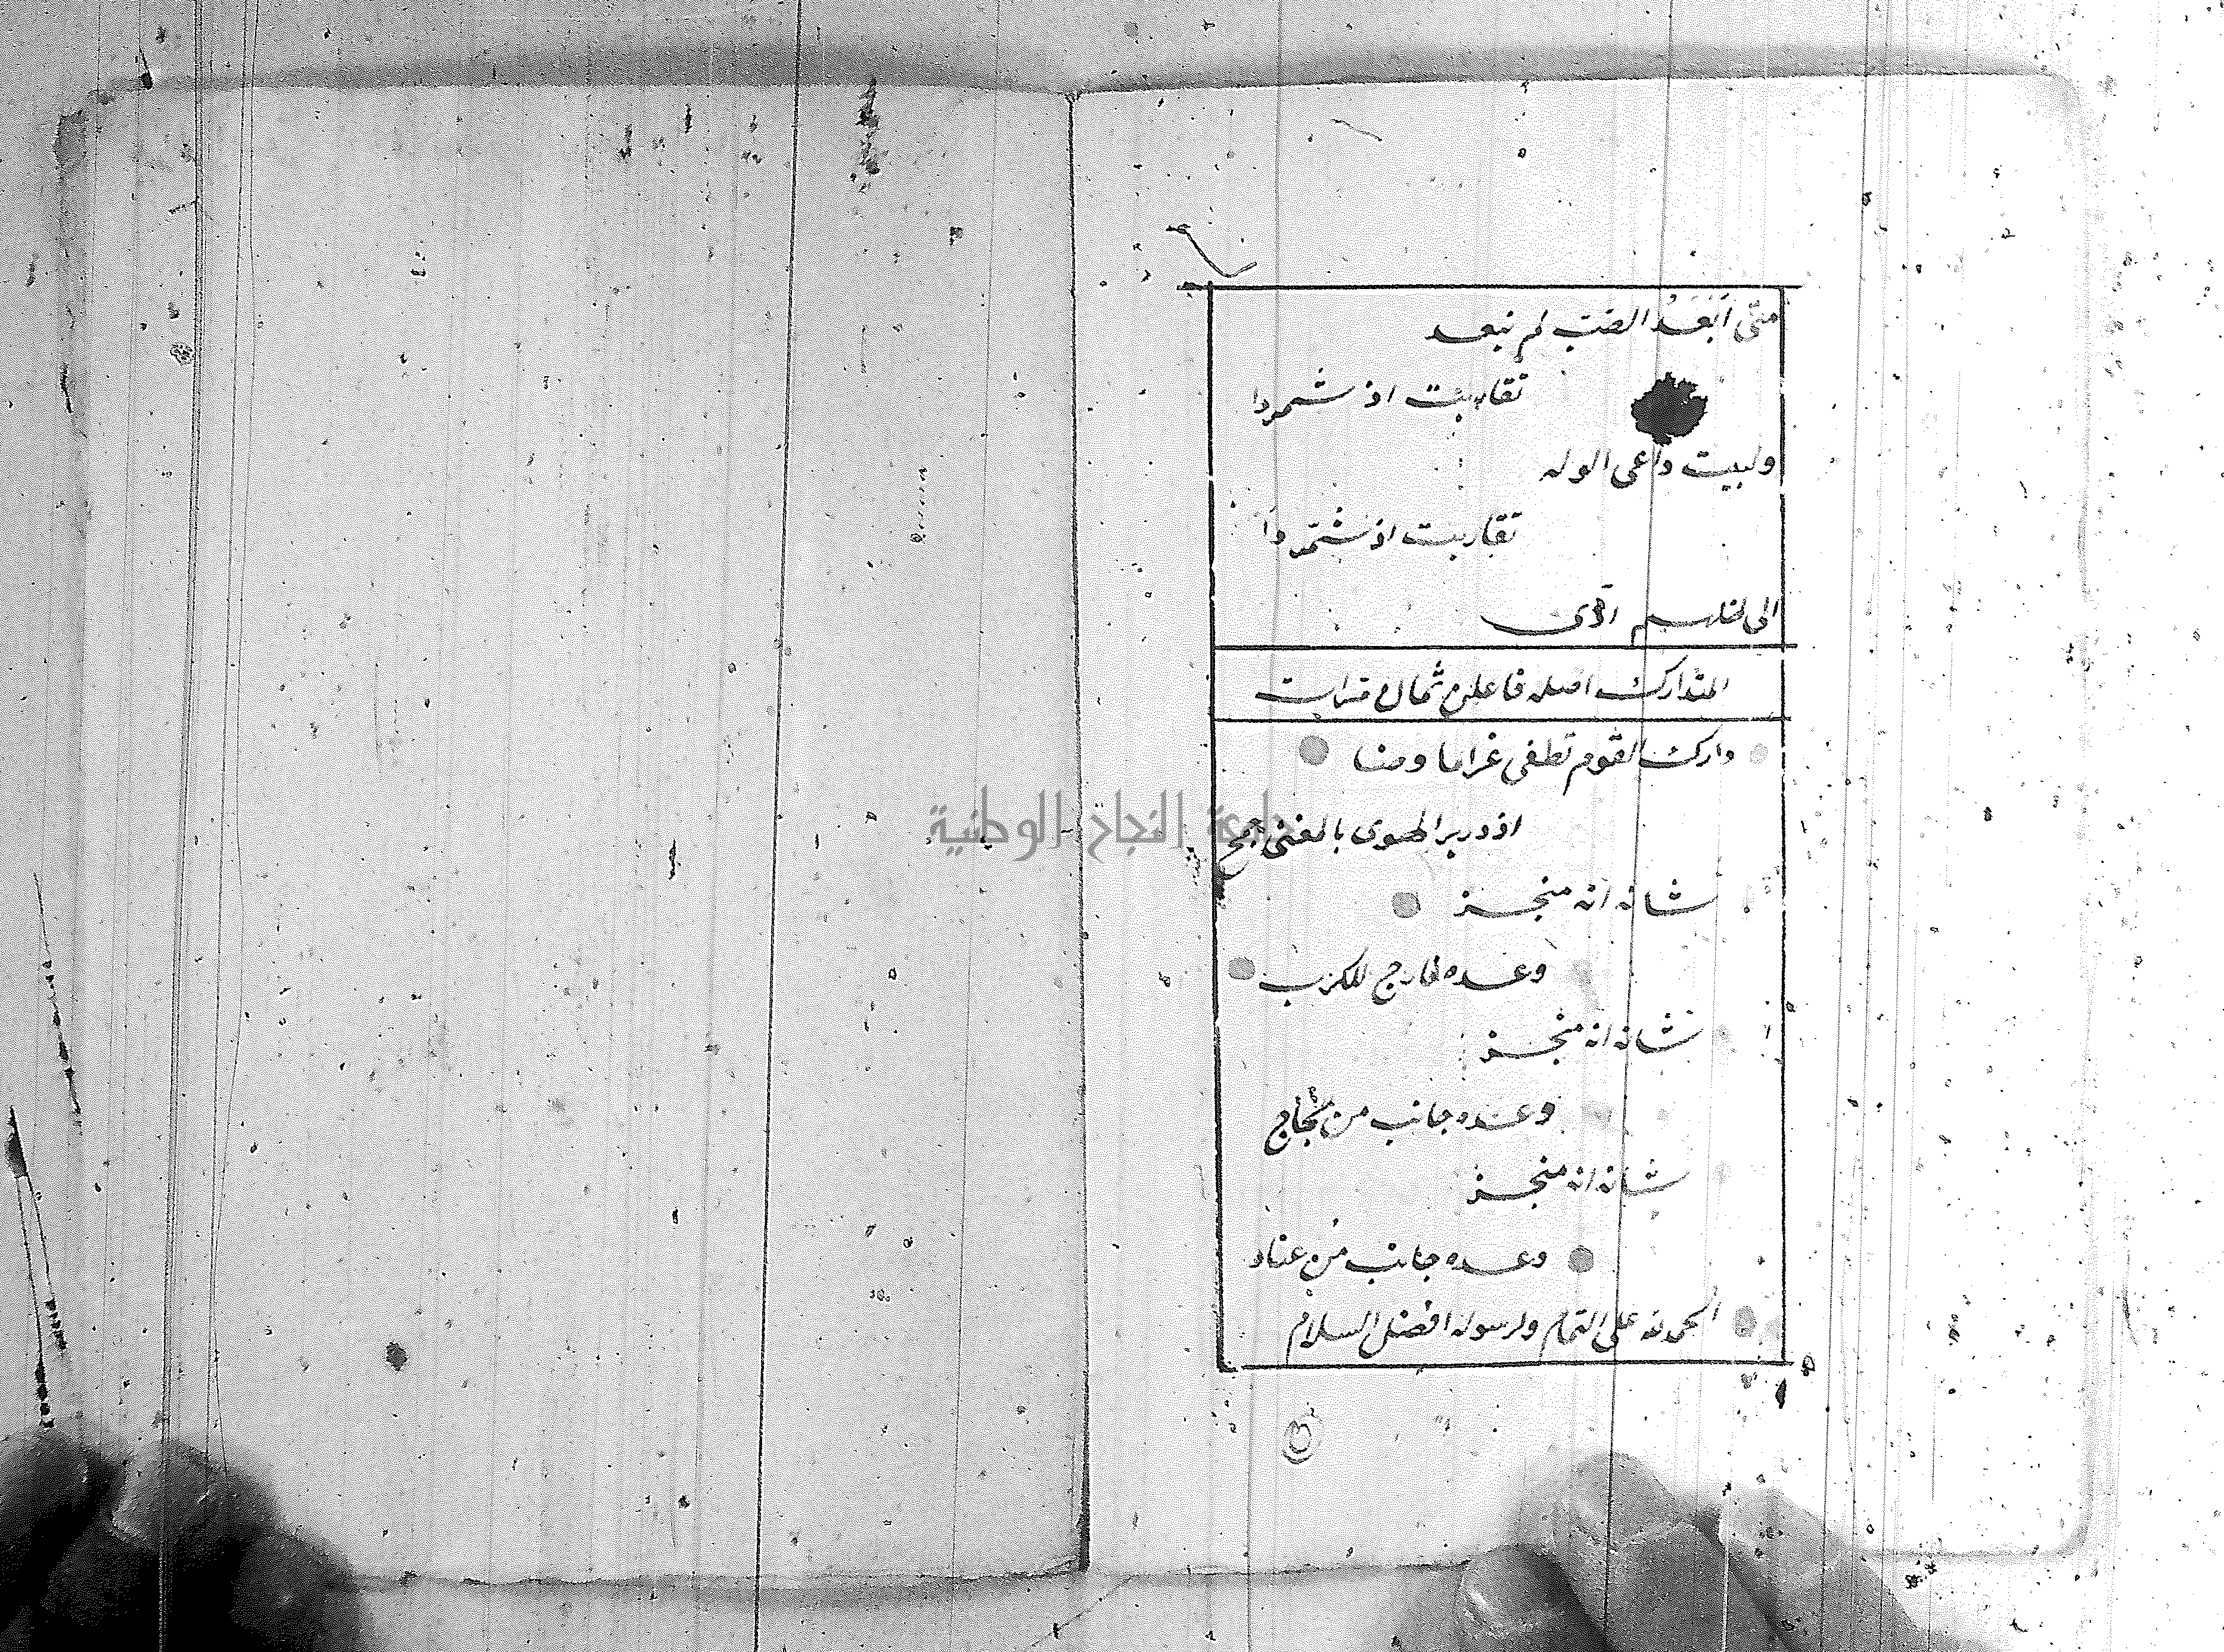 متى أبعد الضب لم نبعد
تقاربت اذ شمروا
ولبيت داعى الوله
تقاربت اذ شمروا
الى
المتدارك اصله فاعلن ثمان مرات
دارك القوم تطفى غراما وضنا
اذ درير الهوى بالمغنى
شانه انه منجز
وعده فارج للكرب
شانه انه منجز
وعده جانب من
شانه انه منجز
وعده جانب من عناد
الحمد لله على التمام ولرسوله افضل السلام
جامعة النجاح الوطنية